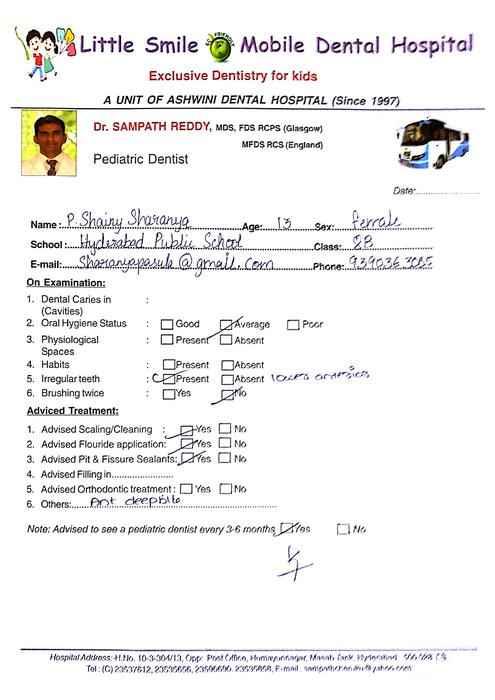 Little Smile Mobile Dental Hospital
Exclusive Dentistry for kids
A UNIT OF ASHWINI DENTAL HOSPITAL (Since 1997)
Dr. SAMPATH REDDY, MDS, FDS RCPS (Glasgow)
MFDS RCS (England)
Pediatric Dentist
Date:
Name: P. Shainy Sharanya Age: 13 Sex: female
School: Hyderabad Public School Class: 8B
E-mail: @gmail.com Phone:
On Examination:
1. Dental Caries in :
(Cavities)
2. Oral Hygiene Status : Good Average Poor
3. Physiological : Present Absent
Spaces
4. Habits : Present Absent
5. Irregular teeth : Present Absent lower
6. Brushing twice : Yes No
Adviced Treatment:
1. Advised Scaling/Cleaning : Yes No
2. Advised Flouride application: Yes No
3. Advised Pit & Fissure Sealants: Yes No
4. Advised Filling in
5. Advised Orthodontic treatment : Yes No
6. Others: Ant deepbite
Note: Advised to see a pediatric dentist every 3-6 months Yes No
Hospital Address: H.No. 10-3-304/13, Opp: Post Office, Humayunnagar, Masab Tank, Hyderabad
Tel : (C) 23537612, 23535656,